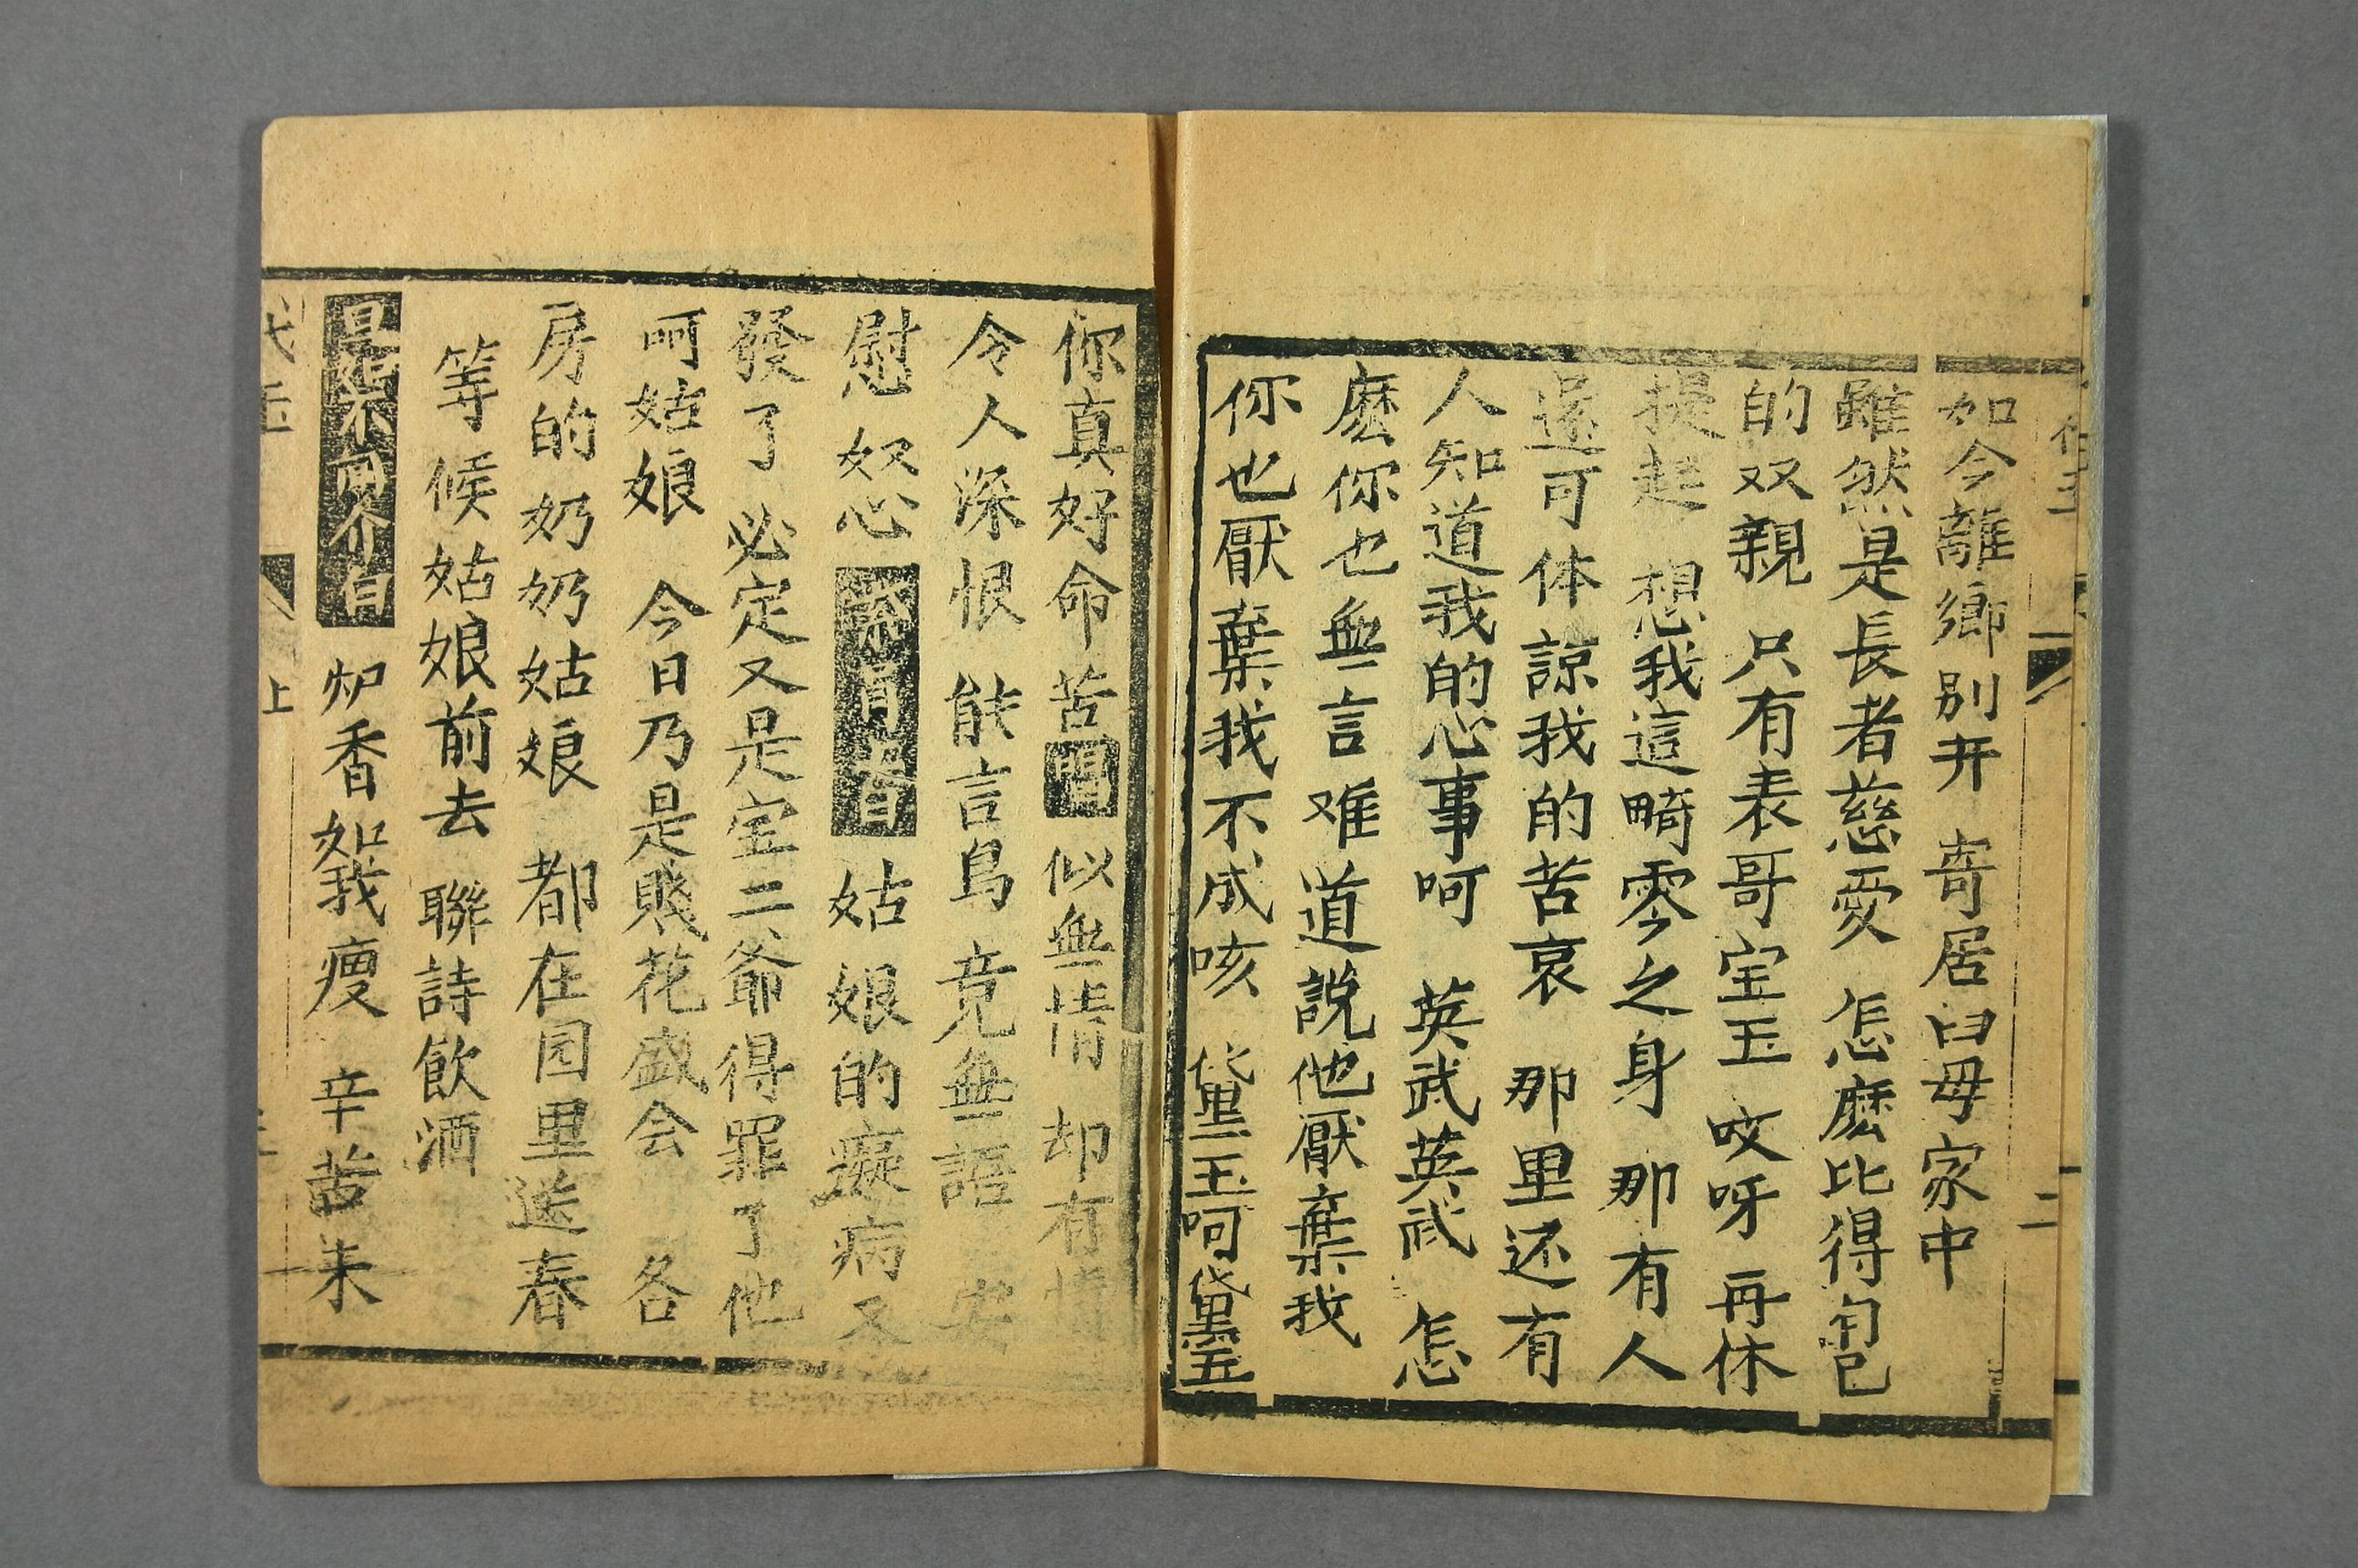 如今離鄉别井 寄居臼母家中
雖然是長者慈愛 怎麽比得自己
的双親 只有表哥宝玉 哎呀 再休
提起 想我這畸零之身 那有人
還可体諒我的苦哀 那里还有
人知道我的心事呵 英武英武 怎
麽你也無言 难道說他厭棄我
你也厭棄我不成咳 黛玉呵黛玉
二
你真好命苦 似無情 却有情
令人深恨 能言鳥 竟無語 安
慰怒心 姑娘的癡病又
發了 必定又是宝二爺得罪了他
呵姑娘 今日乃是賤花盛会 各
房的奶奶姑娘 都在园里送春
等候姑娘前去 聯詩飲酒
炉香如我瘦 辛苦未
上